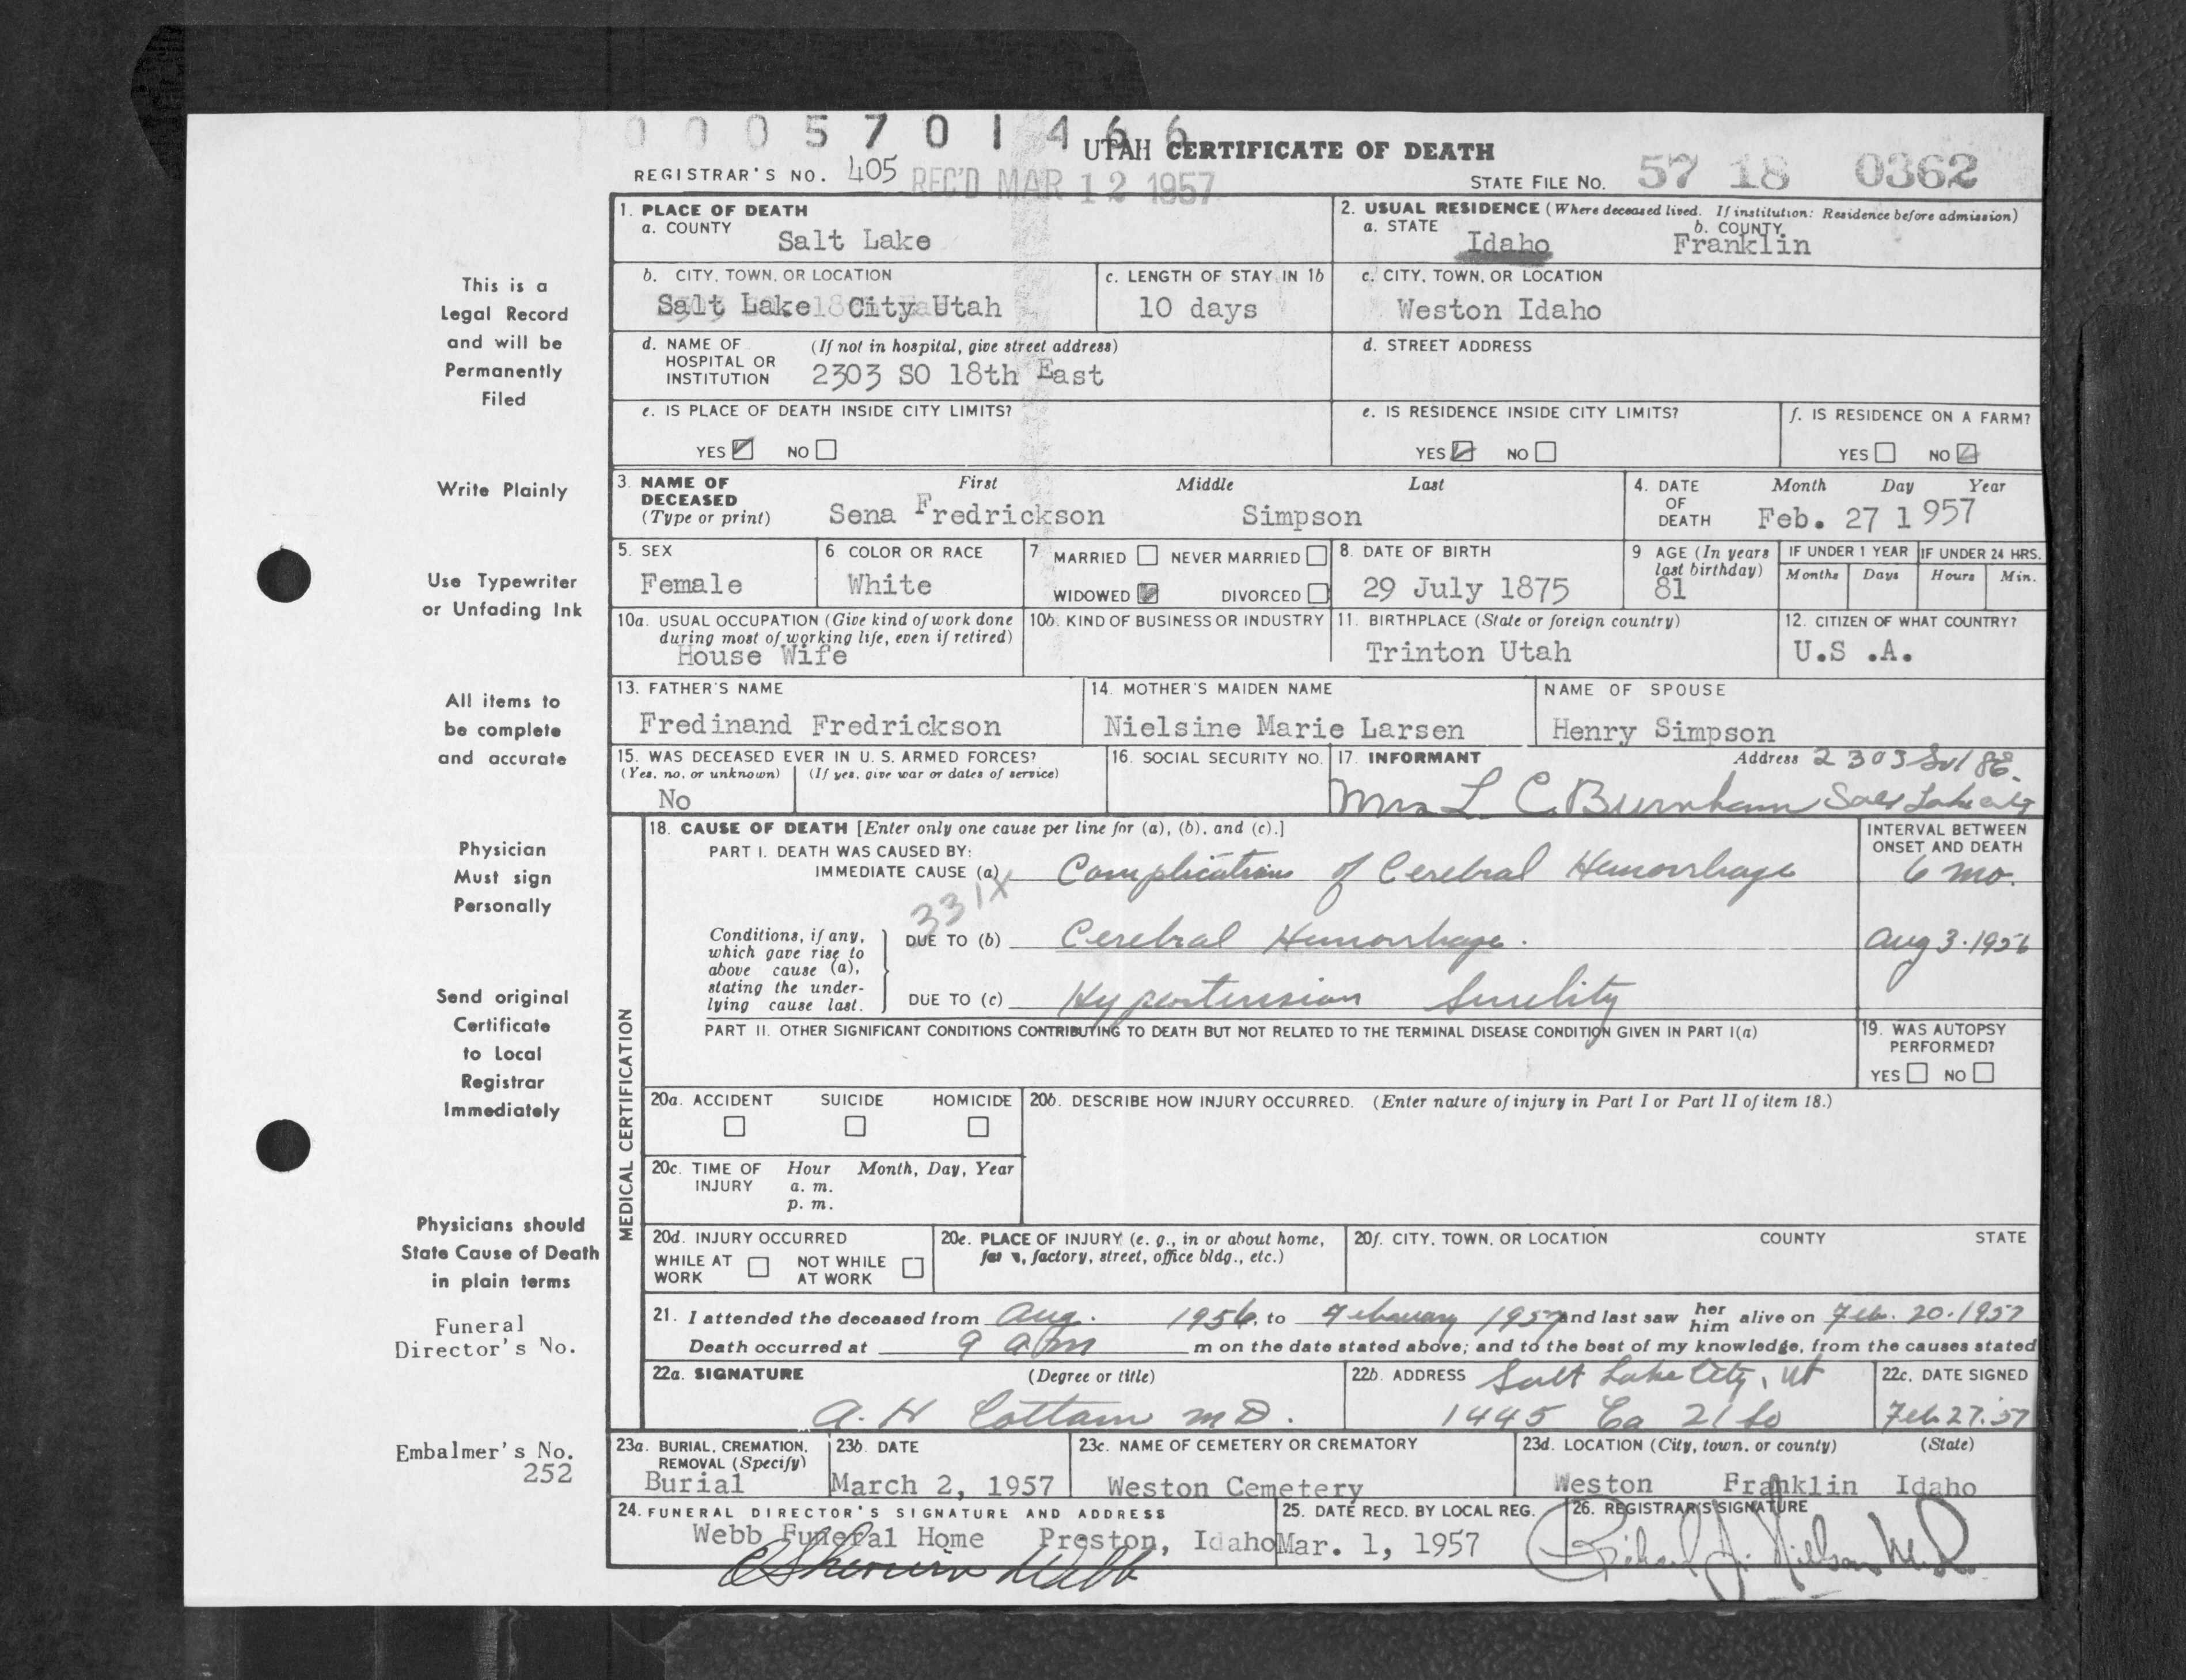 0 0 0 5 7 0 1 4 6 6
UTAH CERTIFICATE OF DEATH
REGISTRAR'S NO. 405 REC'D MAR 12 1957
STATE FILE NO. 57 18 0362
This is a
Legal Record
and will be
Permanently
Filed
Write Plainly
Use Typewriter
or Unfading Ink
All items to
be complete
and accurate
Physician
Must sign
Personally
Send original
Certificate
to Local
Registrar
Immediately
Physicians should
State Cause of Death
in plain terms
Funeral
Director's No.
Embalmer's No.
252
1. PLACE OF DEATH
a. COUNTY
Salt Lake
2. USUAL RESIDENCE (Where deceased lived. If institution: Residence before admission)
a. STATE Idaho
b. COUNTY Franklin
b. CITY, TOWN, OR LOCATION
Salt Lake City Utah
c. LENGTH OF STAY IN 1b
10 days
c. CITY, TOWN, OR LOCATION
Weston Idaho
d. NAME OF HOSPITAL OR INSTITUTION
(If not in hospital, give street address)
2303 SO 18th East
d. STREET ADDRESS
e. IS PLACE OF DEATH INSIDE CITY LIMITS?
YES NO
e. IS RESIDENCE INSIDE CITY LIMITS?
YES NO
f. IS RESIDENCE ON A FARM?
YES NO
3. NAME OF DECEASED (Type or print)
First Middle Last
Sena Fredrickson Simpson
4. DATE OF DEATH
Month Day Year
Feb. 27 1957
5. SEX
Female
6. COLOR OR RACE
White
7. MARRIED NEVER MARRIED
WIDOWED DIVORCED
8. DATE OF BIRTH
29 July 1875
9 AGE (In years last birthday)
81
IF UNDER 1 YEAR
Months Days
IF UNDER 24 HRS.
Hours Min.
10a. USUAL OCCUPATION (Give kind of work done during most of working life, even if retired)
House Wife
10b. KIND OF BUSINESS OR INDUSTRY
11. BIRTHPLACE (State or foreign country)
Trinton Utah
12. CITIZEN OF WHAT COUNTRY?
U.S .A.
13. FATHER'S NAME
Fredinand Fredrickson
14. MOTHER'S MAIDEN NAME
Nielsine Marie Larsen
NAME OF SPOUSE
Henry Simpson
15. WAS DECEASED EVER IN U. S. ARMED FORCES?
(Yes, no, or unknown) (If yes, give war or dates of service)
No
16. SOCIAL SECURITY NO.
17. INFORMANT
Address 2303 So 18 E.
Mrs L. C. Burnham Salt Lake City
MEDICAL CERTIFICATION
18. CAUSE OF DEATH [Enter only one cause per line for (a), (b), and (c).]
INTERVAL BETWEEN ONSET AND DEATH
PART I. DEATH WAS CAUSED BY:
IMMEDIATE CAUSE (a) Complications of Cerebral Hemorrhage
6 mo.
331X
Conditions, if any, which gave rise to above cause (a), stating the underlying cause last.
DUE TO (b) Cerebral Hemorrhage.
Aug 3. 1956
DUE TO (c) Hypertension Senility
PART II. OTHER SIGNIFICANT CONDITIONS CONTRIBUTING TO DEATH BUT NOT RELATED TO THE TERMINAL DISEASE CONDITION GIVEN IN PART I(a)
19. WAS AUTOPSY PERFORMED?
YES NO
20a. ACCIDENT SUICIDE HOMICIDE
20b. DESCRIBE HOW INJURY OCCURRED. (Enter nature of injury in Part I or Part II of item 18.)
20c. TIME OF INJURY
Hour Month, Day, Year
a. m.
p. m.
20d. INJURY OCCURRED
WHILE AT WORK NOT WHILE AT WORK
20e. PLACE OF INJURY (e. g., in or about home, farm, factory, street, office bldg., etc.)
20f. CITY, TOWN, OR LOCATION COUNTY STATE
21. I attended the deceased from Aug. 1956, to February 1957 and last saw her him alive on Feb. 20. 1957
Death occurred at 9 am m on the date stated above; and to the best of my knowledge, from the causes stated
22a. SIGNATURE (Degree or title)
A. H Cottam MD.
22b. ADDRESS Salt Lake City, Ut
1445 Ea 21 So
22c. DATE SIGNED
Feb 27. 57
23a. BURIAL, CREMATION, REMOVAL (Specify)
Burial
23b. DATE
March 2, 1957
23c. NAME OF CEMETERY OR CREMATORY
Weston Cemetery
23d. LOCATION (City, town, or county) (State)
Weston Franklin Idaho
24. FUNERAL DIRECTOR'S SIGNATURE AND ADDRESS
Webb Funeral Home Preston, Idaho
25. DATE RECD. BY LOCAL REG.
Mar. 1, 1957
26. REGISTRAR'S SIGNATURE